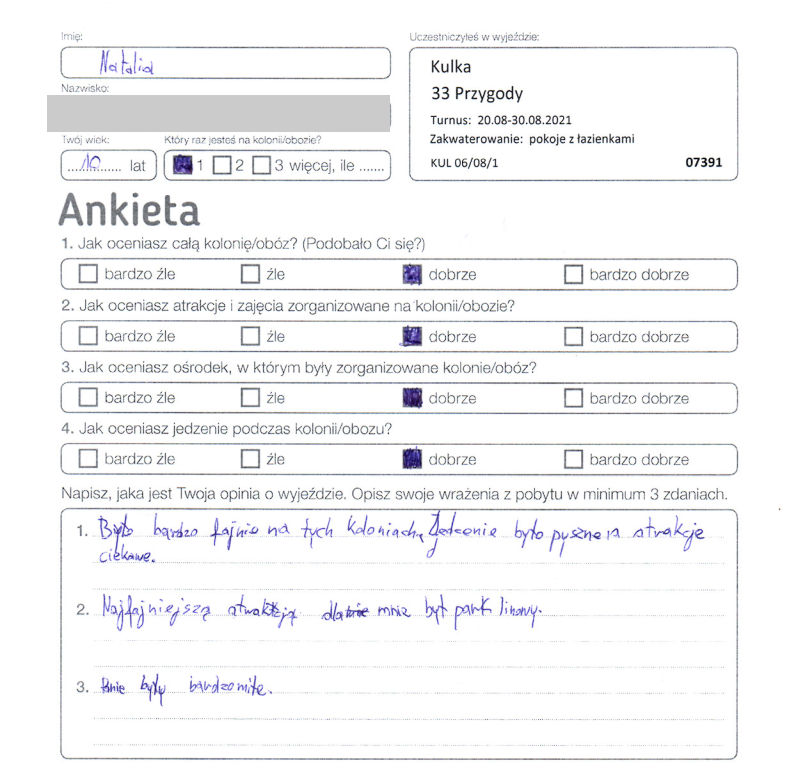 Imię:
Natalia
Uczestniczyłeś w wyjeździe:
Kulka
33 Przygody
Turnus: 20.08-30.08.2021
Zakwaterowanie: pokoje z łazienkami
KUL 06/08/1 07391
Nazwisko:
Twój wiek: Który raz jesteś na kolonii/obozie?
....10...... lat 1 2 3 więcej, ile .......
Ankieta
1. Jak oceniasz całą kolonię/obóz? (Podobało Ci się?)
bardzo źle źle dobrze bardzo dobrze
2. Jak oceniasz atrakcje i zajęcia zorganizowane na kolonii/obozie?
bardzo źle źle dobrze bardzo dobrze
3. Jak oceniasz ośrodek, w którym były zorganizowane kolonie/obóz?
bardzo źle źle dobrze bardzo dobrze
4. Jak oceniasz jedzenie podczas kolonii/obozu?
bardzo źle źle dobrze bardzo dobrze
Napisz, jaka jest Twoja opinia o wyjeździe. Opisz swoje wrażenia z pobytu w minimum 3 zdaniach.
1. Było bardzo fajnie na tych koloniach. Jedzenie było pyszne a atrakcje
ciekawe.
2. Najfajniejszą atrakcją dla mnie był park linowy.
3. Panie były bardzo miłe.